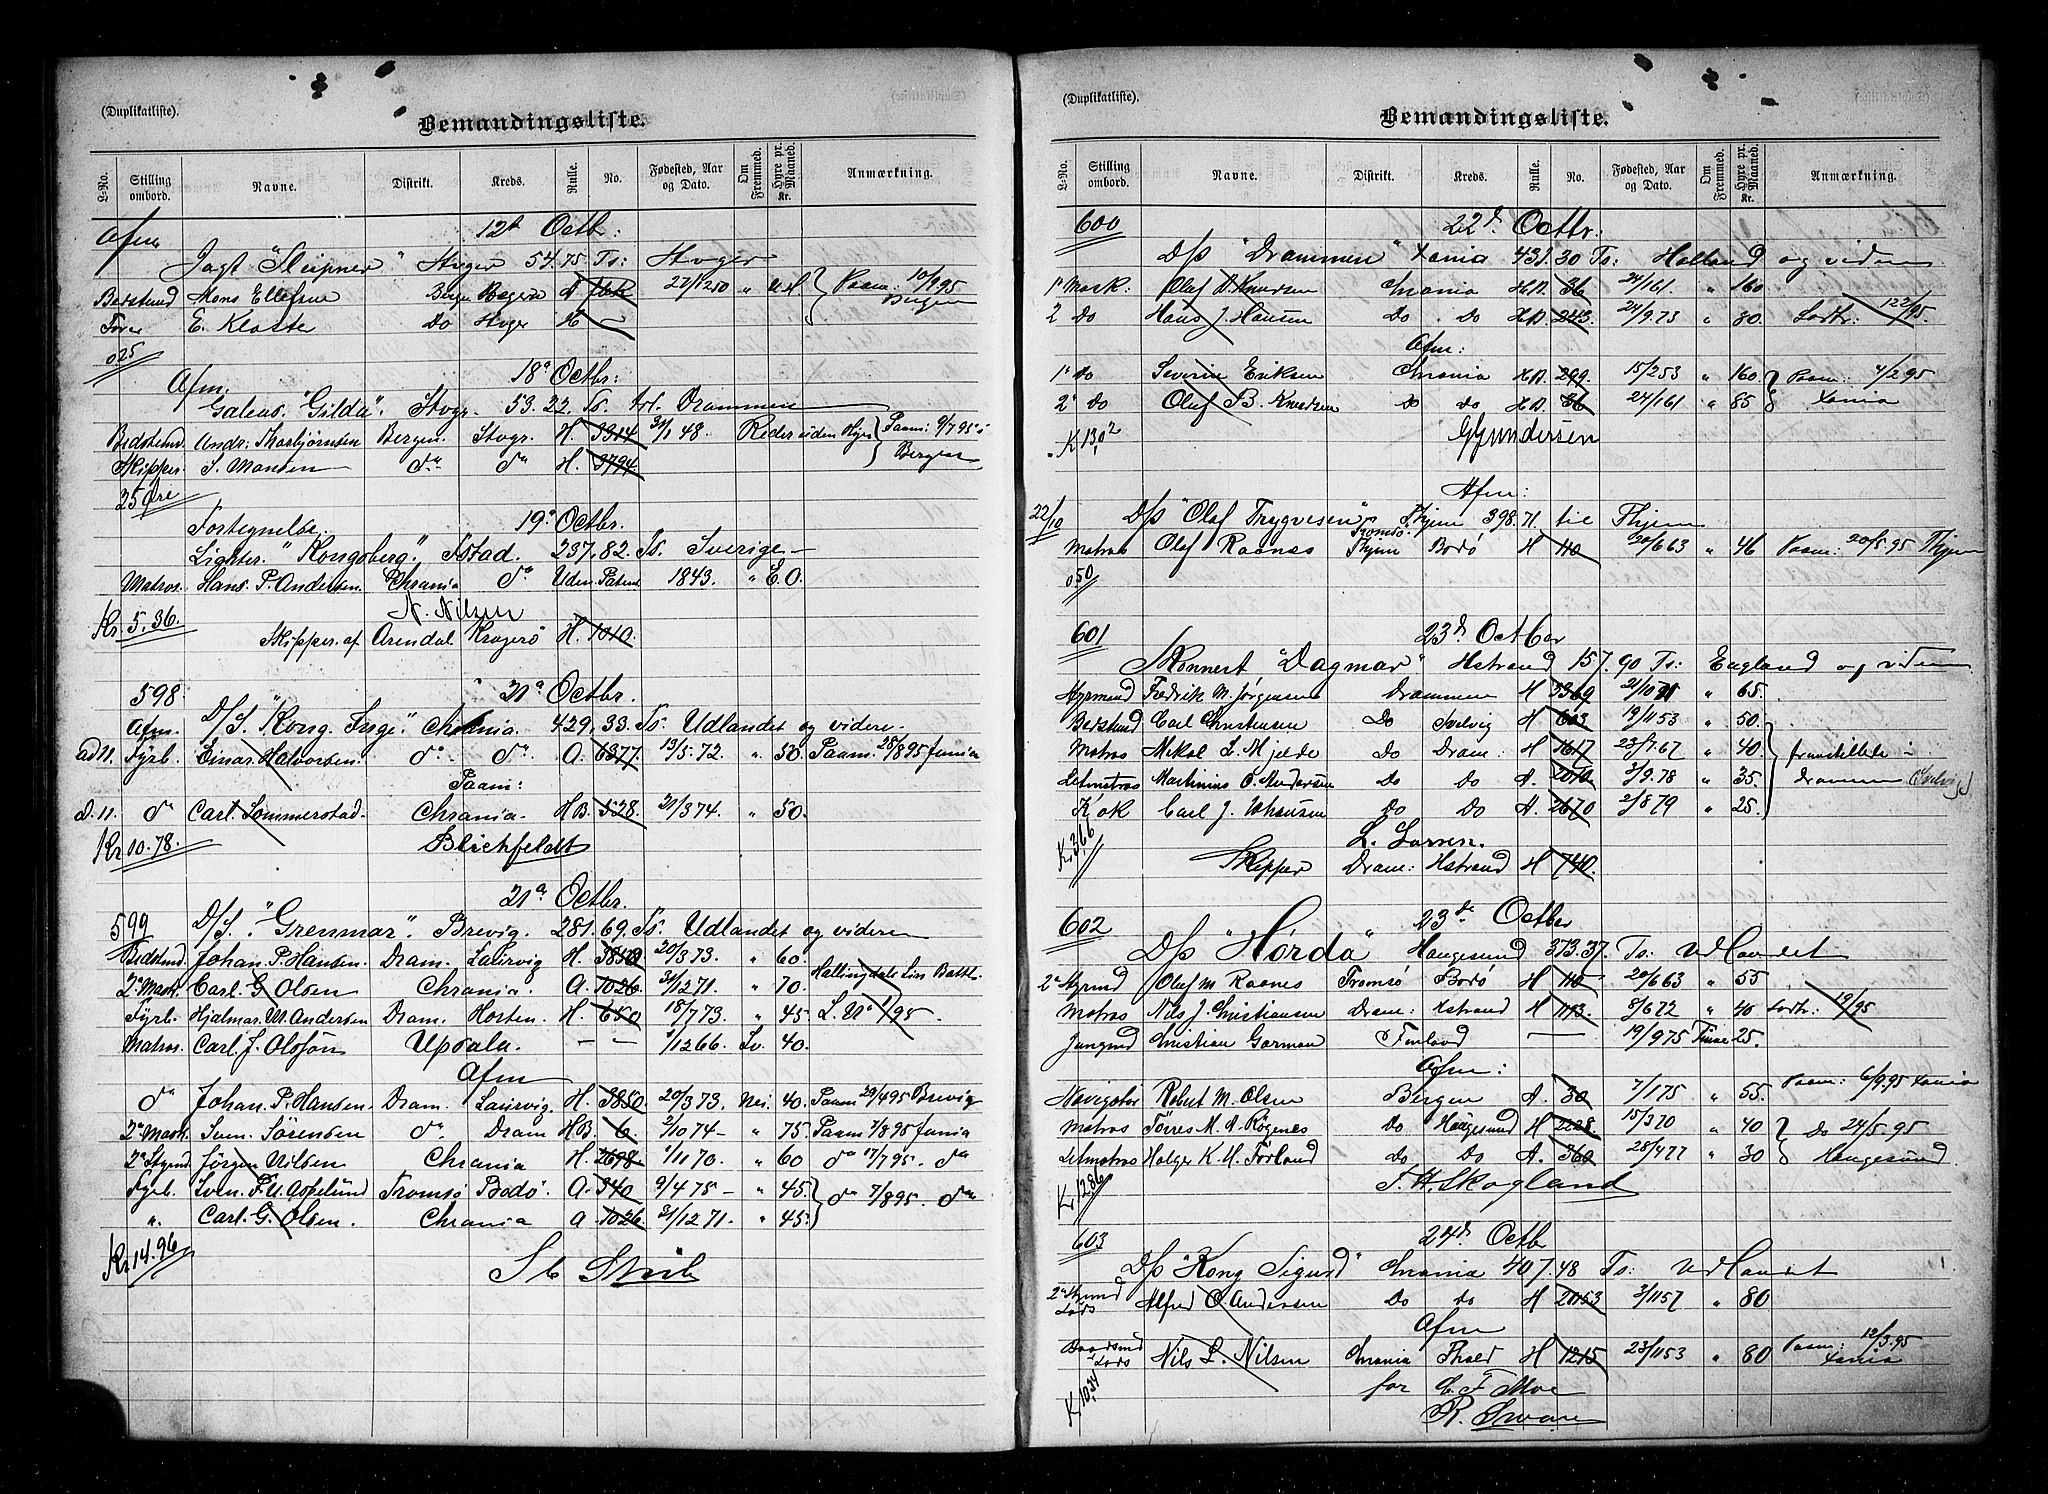 (Duplikatliste).
Bemandingsliste.
L-No. Stilling ombord. Navne. Distrikt. Kreds. Rulle. No. Fødested, Aar og Dato. Om Fremmed. Hyre pr. Maaned. Kr. Anmærkning.
Afm 12d Octbr:
Jagt "Sleipner" Stvger 54.75 Ts: Stvger
Bedstmd Mons Ellefsen Bergen A 27/1250 " Paam: 10/9 95 Bergen
E. Kloster Do Stvger
025
18d Octbr:
Afm.
Galeas. "Gilda". Stvgr. 53.22. Ts. trl. Drammen
Bedstemd. Andr. Thorbjørnsen Bergen. Stvgr. H. 3314 31/1 48. Reder uden Hyre Paam: 9/7 95 i Bergen
Skipper. S. Monsen do do H. 3794
25 Øre
19d Octbr.
Fortegnelse.
Ligter. "Kongsberg". Fstad. 237.82. Ts. Sverige
Matros. Hans. P. Andersen. Chrania do Uden Patent 1843. " E.O.
Kr. 5.36. N. Nilsen
Skipper. af Arendal Kragerø H. 1010.
598. 21d Octbr.
Afm. D/S. "Kong. Inge". Chrania. 429.33. Ts. Udlandet og videre
ad 11. Fyrb. Einar. Halvorsen. do do A. 6377. 13/5.72. " 50. Paam: 28/8 95 Xania
Paam:
d. 11. do Carl. Sommerstad. Chrania. HB. 528. 21/3 74. " 50.
Kr 10.78. Blichfeldt
21d Octbr.
599 D/S. "Grenmar". Brevig. 281.69. Ts. Udlandet og videre
Bedstmd. Johan. P. Hansen. Dram. Laurvig H. 3850 20/3 73. " 60.
2d Mask. Carl. G. Olsen Chrania. A. 1026. 31/12 71. " 70. Hallingdals Lin. Batt.
Fyrb. Hjalmar. M. Andersen Dram. Horten. H. 650 18/7 73. " 45. L. No 1/95
Matros. Carl. J. Olsson Upsala. — — 1/12 66. Sv. 40.
Afm
do Johan. P. Hansen. Dram. Laurvig. H. 3850. 20/3 73. Nei. 40. Paam 29/4 95 Brevig
2d Mask. Sven. Sörensen do. Dram HB 6. 2/10 74 " 75. Paam 7/8 95 Xania
2d Styrmd Jörgen Nilsen Chrania H. 2698 1/11 70. " 60 do 17/7 95. do
Fyrb. Sven. P. U. Aspelund Tromsø Bodø. A. 340 9/4 75 " 45. do 7/8 95. do
". Carl. G. Olsen. Chrania A 1026. 31/12 71. " 45.
Kr 14.96

(Duplikatliste).
Bemandingsliste.
L-No. Stilling ombord. Navne. Distrikt. Kreds. Rulle. No. Fødested, Aar og Dato. Om Fremmed. Hyre pr. Maaned. Kr. Anmærkning.
600 22d. Octbr:
D/s "Drammen" Xania 431.30 Ts: Holland og videre
1d Mask: Olaf B. Knudsen Chrania HB. 36 24/1 61. " 160
2 Do Hans J. Hansen Do. Do HB. 243. 24/9.73 " 80. Sortr: 122/95.
Afm:
1d Do Severin Eriksen Chrania HB. 299. 15/2 53 " 160 Paam: 4/2 95 Xania
2d Do Oluf B. Knudsen Do Do HB. 36 24/1 61 " 85
K 13.02 G Gundersen
Afm:
22/10 D/s "Olaf Trygvesen" Thjem 398.71. til Thjem
Matros Olaf Raanes Tromsø Thjem Bodø H 110 20/6 63 " 46 Paam: 20/5.95 Thjem
050
601 23d. Octber
Skonnert "Dagmar" Hstrand 157.90 Ts: England og videre
Styrmand Fredrik M. Jørgensen Drammen H 3369 " 65.
Bedstmd Carl Christensen Do Svelvig H 603 19/11 53 " 50.
Matros Mikal L. Mjelde Do Dram: H 1617 23/7.67 " 40. fravillede i
Letmatros Martinius O. Andersen Do Do A. 2010 3/9.78 " 35. Drammen (Svelvig)
Kok Carl J. Johansen Do Do A. 2670 2/8 79 " 25.
K 3.66 L. Larsen.
Skipper Dram: Hstrand H 740.
602 23de Octber
D/s "Hörda" Haugesund 373.37. Ts: Udlandet
2d Styrmd Oluf M Raanes Tromsö Bodö H 110 20/6 63 " 55
Matros Nils J. Christiansen Dram: Hstrand H 1193. 8/6 72 " 40 Sortr: 19/95
Jungmd Christian Gorman Finland — 19/9 75 Finne 25.
Afm:
Navigatør Robert M. Olsen Bergen A. 30 7/1 75 " 55. Paam: 6/9.95 Xania
Matros Törres M. A. Røgenes Do Haugesund H 2228. 15/3 70 " 40 Do 24/5.95
Letmatros Helge K. M. Førland Do Do A. 360 28/4 77 " 30 Haugesund.
Kr 12.86 T. H. Skogland
603 24d. Octb
D/s "Kong Sigurd" Chrania 407.48 Ts: Udlandet
2d Styrmd Lods Alfred O. Andersen Do Do H 2053 3/11 57 " 80
Afm
Baadsmd Lods Nils L. Nilsen Chrania H 1215 23/11 53 " 80 Paam: 12/3.95 Xania
K 10.34 for C. F. Moe